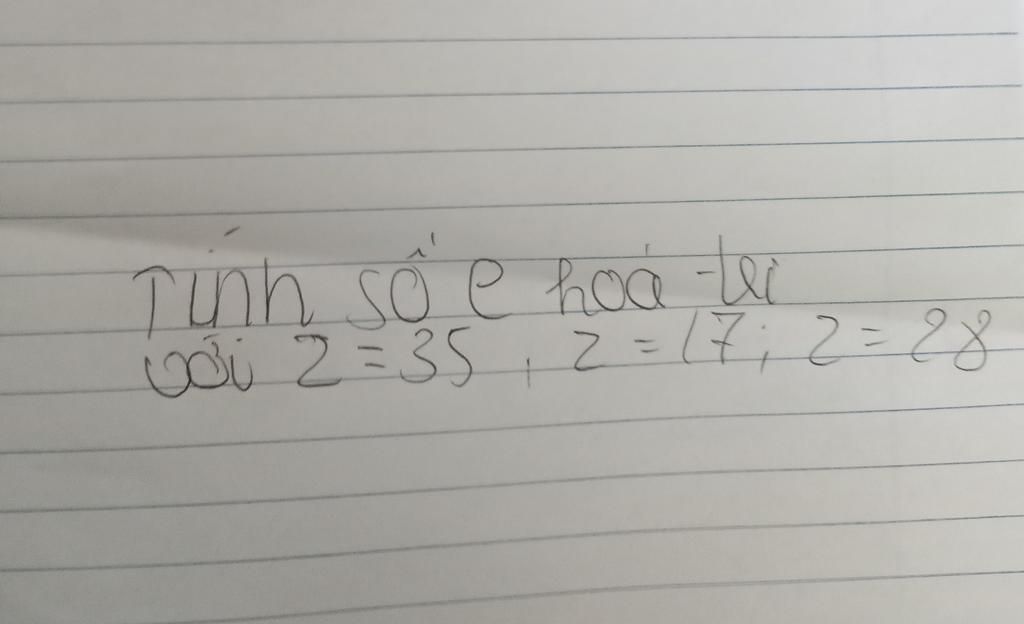 Tính số e hoá trị
với Z = 35, Z = 17; Z = 28